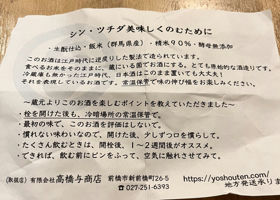 シン・ツチダ美味しくのむために
・生酛仕込・飯米(群馬産)・精米90%・酵母無添加
このお酒は江戸時代に逆戻りした製法で造られています。
食べるお米をそのままに、蔵にいる菌でお酒にする。とても原始的な造りです。
冷蔵庫も無かった江戸時代、日本酒はこのまま置いても大丈夫!
それを表現しているお酒です。常温保管で味の伸び幅をお楽しみください。
〜蔵元よりこのお酒を楽しむポイントを教えていただきました〜
・栓を開けた後も、冷暗場所の常温保管で。
・最初の味で、このお酒を評価はしないで。
・慣れない味わいなので、開けた後、少しずつ口を慣らして。
・たくさん飲むときは、開栓後、1〜2週間後がオススメ。
・できれば、飲む前にビンをふって、空気に触れさせてみて。
(取扱店)有限会社高橋与商店 前橋市新前橋町26-5
☎027-251-6393
https://yoshouten.com/
地方発送承り